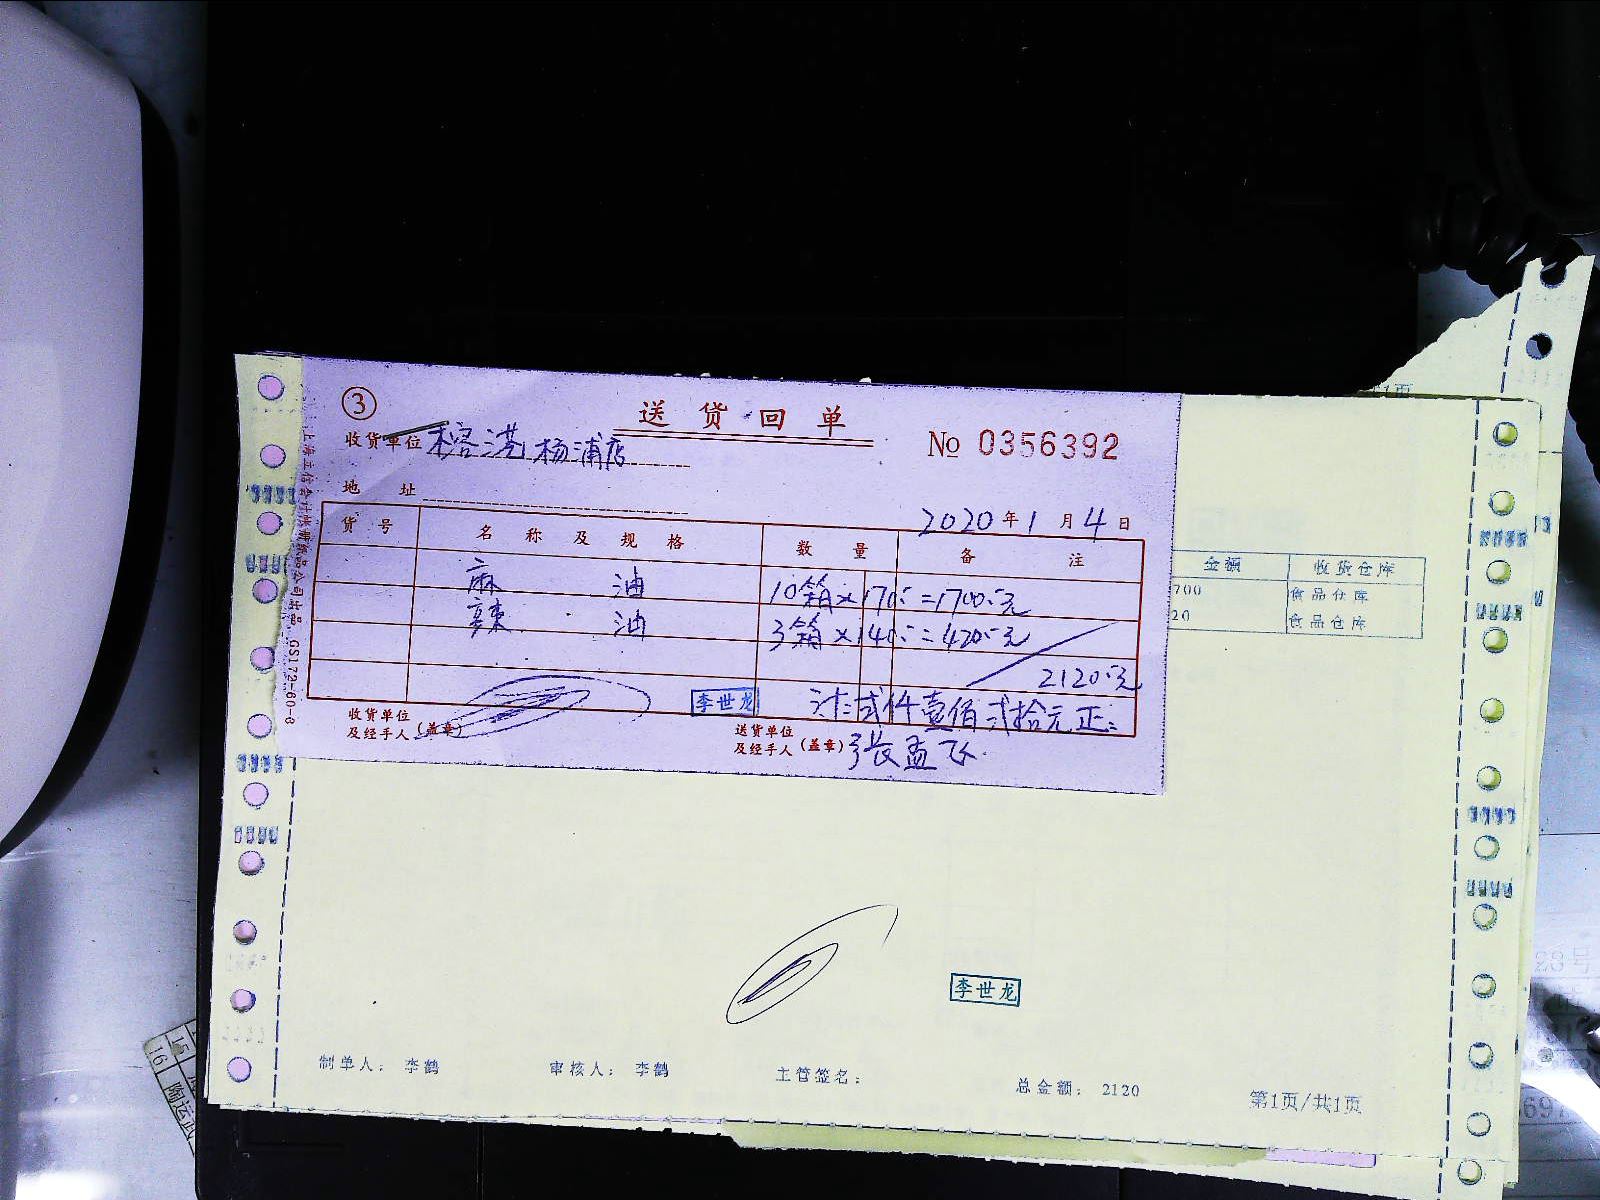 ③
送货回单
收货单位 榕港杨浦店
№ 0356392
地址
2020年1月4日
货号 名称及规格 数量 备注
麻油 10箱×170:=1700:元
辣油 3箱×140:=420:元
2120:元
李世龙
计:贰仟壹佰贰拾元正:
收货单位
及经手人(盖章)
送货单位
及经手人(盖章) 张孟飞
GS172-60-6
金额 收货仓库
700 食品仓库
20 食品仓库
李世龙
制单人: 李鹤 审核人: 李鹤 主管签名: 总金额: 2120 第1页/共1页
15
16 陶运武
23号